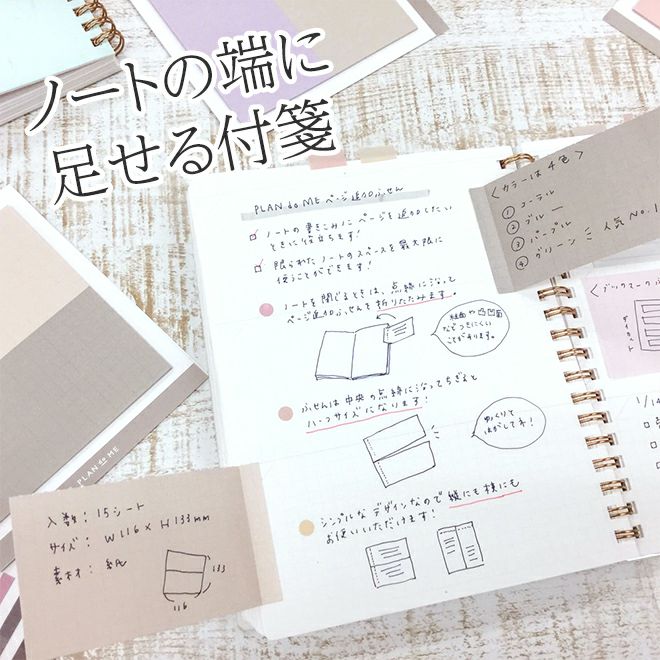 ノートの端に
足せる付箋
PLAN to ME ページ追加ふせん
ノートの書きこみにページを追加したい
ときに役立ちます!
限られたノートのスペースを最大限に
使うことができます!
ノートを閉じるときは、点線に沿って
ページ追加ふせんを折りたたみます。
紙面や凸凹面
などつきにくい
ことがあります。
ふせんは中央の点線に沿ってちぎると
ハーフサイズになります!
ゆっくりと
はがしてネ!
シンプルなデザインなので縦にも横にも
お使いいただけます!
<カラーは4色>
① コーラル
② ブルー
③ パープル
④ グリーン
人気No.1
<ブックマーク
ダイカット
1/14
PLAN to ME
入数: 15シート
サイズ: W116 × H133mm
素材: 紙
133
116